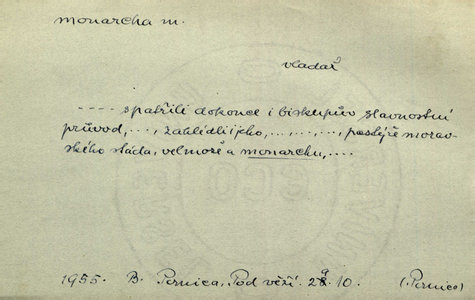 monarcha m.
vladař
---- spatřili dokonce i biskupův slavnostní
průvod, ..., zahlédli i jeho, ..., ..., ..., pastýře morav-
ského stáda, velmože a monarchu, ...
1955. B. Pernica, Pod věží. 10. (Pernica)